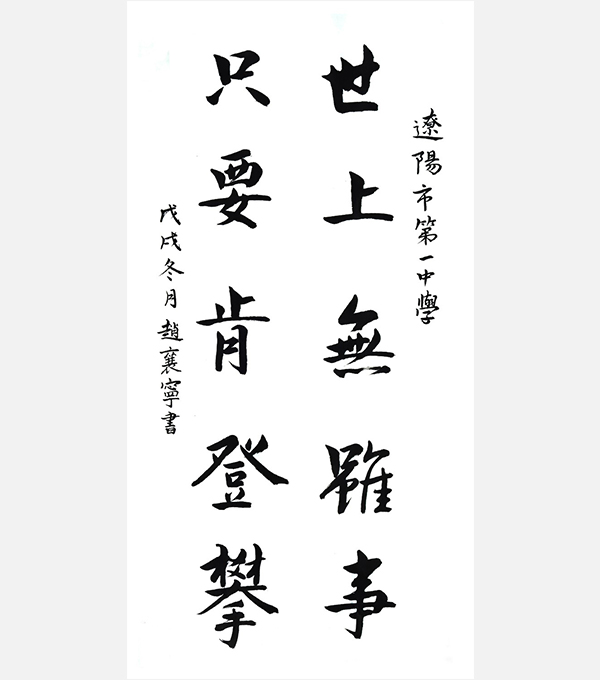 遼陽市第一中學
世上無雖事
只要肯登攀
戊戌冬月趙襄寧書